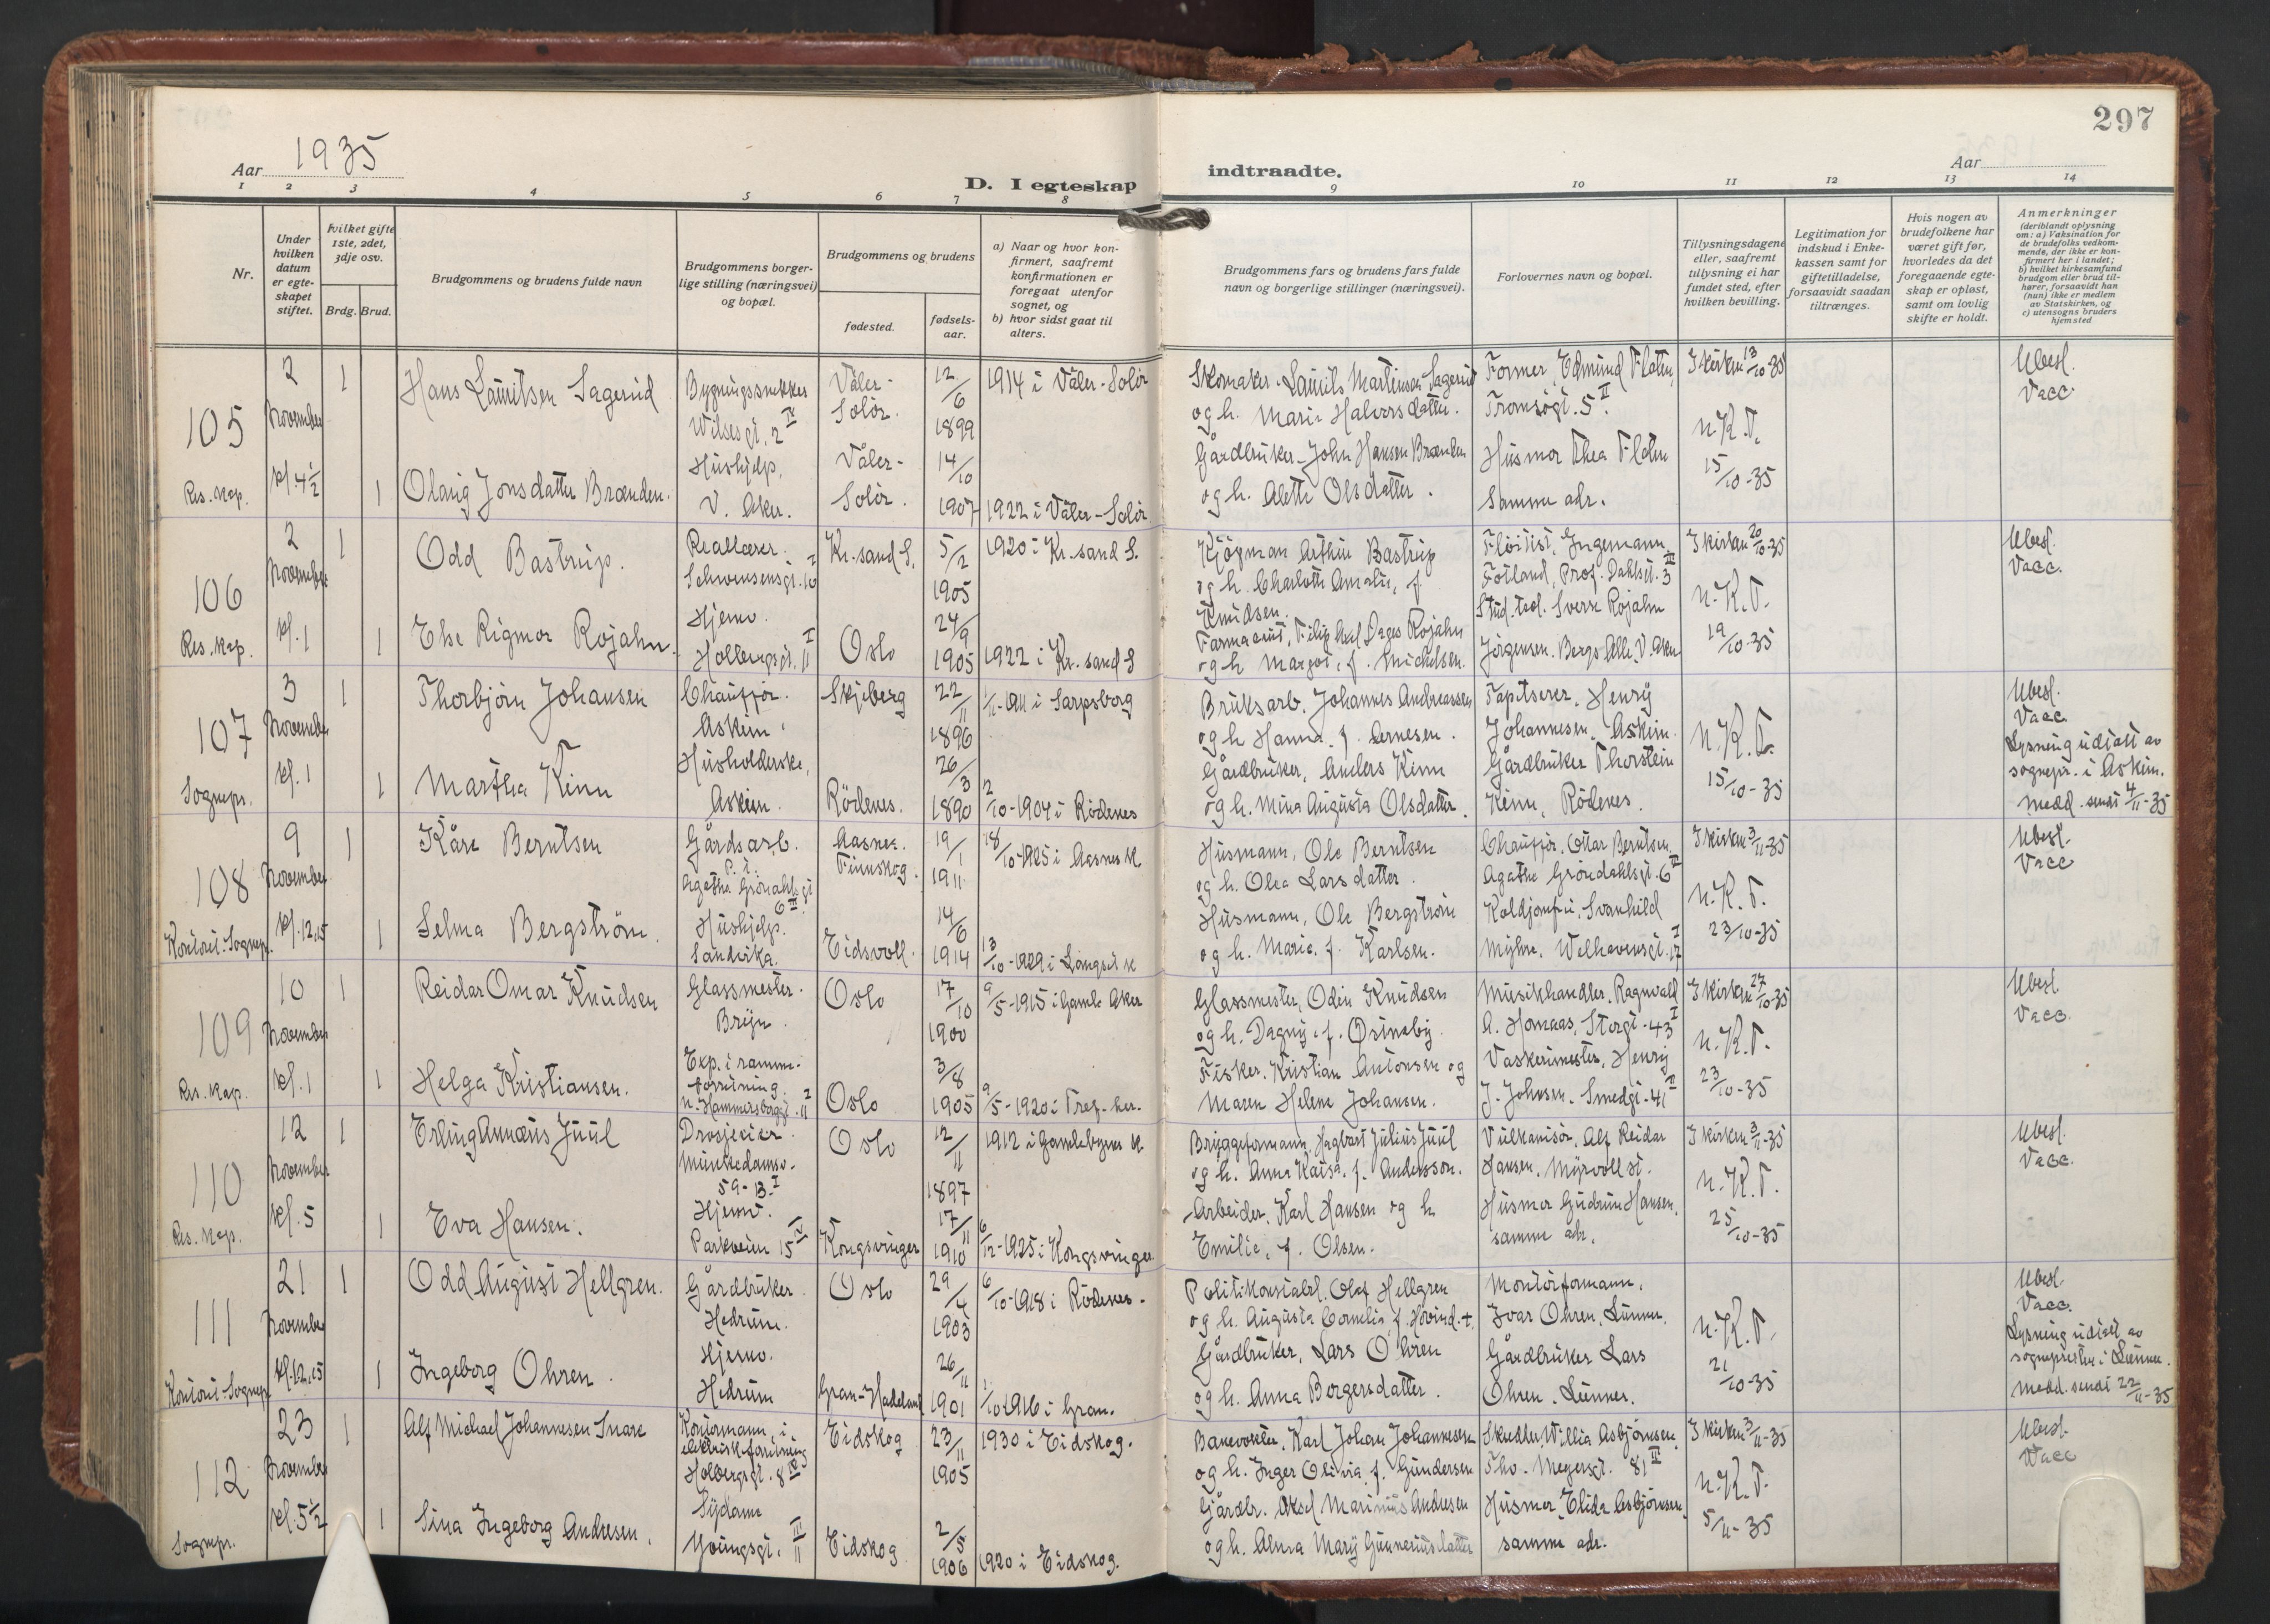 297
Aar 1935
D. I egteskap
indtraadte.
Aar
1 2 3 4 5 6 7 8 9 10 11 12 13 14
Nr.
Under hvilken datum er egteskapet stiftet.
Hvilket gifte 1ste, 2det, 3dje osv.
Brdg. Brud.
Brudgommens og brudens fulde navn
Brudgommens borgerlige stilling (næringsvei) og bopæl.
Brudgommens og brudens
fødested.
fødselsaar.
a) Naar og hvor konfirmert, saafremt konfirmationen er foregaat utenfor sognet, og
b) hvor sidst gaat til alters.
Brudgommens fars og brudens fars fulde navn og borgerlige stillinger (næringsvei).
Forlovernes navn og bopæl.
Tillysningsdagene eller, saafremt tillysning ei har fundet sted, efter hvilken bevilling.
Legitimation for indskud i Enkekassen samt for giftetilladelse, forsaavidt saadan tiltrænges.
Hvis nogen av brudefolkene har været gift før, hvorledes da det foregaaende egteskap er opløst, samt om lovlig skifte er holdt.
Anmerkninger (deriblandt oplysning om: a) Vaksination for de brudefolks vedkommende, der ikke er konfirmert her i landet; b) hvilket kirkesamfund brudgom eller brud tilhører, forsaavidt han (hun) ikke er medlem av Statskirken, og c) utensogns bruders hjemsted
105
Res. kap.
2 November kl. 4 1/2
1
Hans Lauritsen Sagerud
Bygningssnekker
Wilsesgt. 2 IV
Våler-Solør.
12/6 1899
1914 i Våler-Solør
Skomaker Laurits Martinsen Sagerud
og h. Marie Halvorsdatter.
Former, Edmund Flaten,
Tromsøgt. 5 II.
I kirken 13/10-35
n.K.T.
15/10-35
Ubesl.
Vacc.
1
Olaug Jonsdatter Brænden.
Hushjelp.
V. Aker.
Våler-Solør.
14/10 1907
1922 i Våler-Solør
Gårdbruker John Hansen Brænden
og h. Alette Olsdatter.
Husmor Thea Flaten
samme adr.
106
Res. kap.
2 November kl. 1
1
Odd Bastrup.
Reallærer.
Schwensensgt. 10 I
Kr.sand S.
5/2 1905
1920 i Kr.sand S.
Kjøpman Arthur Bastrup
og h. Charlotte Amalie, f.
Knudsen.
Fløitist, Ingemann
Fotland, Prof. Dahlsgt. 3 III
I kirken 20/10-35
n.K.T.
19/10-35
Ubesl.
Vacc.
1
Else Rigmor Rojahn.
Hjemv.
Holbergsgt. 11 I
Oslo
24/9 1905
1922 i Kr.sand S
Farmaceut, Filip Axel Dages Rojahn
og h. Margot, f. Michelsen.
Stud. teol. Sverre Rojahn
Jørgensen. Bergs Alle, V. Aker
107
Sognepr.
3 November kl. 1
1
Thorbjørn Johansen
Chauffør.
Askim.
Skjeberg
22/11 1896
1/11-1911 i Sarpsborg
Bruksarb. Johannes Andreassen
og h. Hanna f. Arnesen.
Tapetserer, Henry
Johannesen, Askim.
n.K.T.
15/10-35
Ubesl.
Vacc.
Lysning utstedt av
sognepr. i Askim.
Medd. sendt 4/11-35
1
Martha Kinn
Husholderske,
Askim.
Rødenes.
26/3 1890
2/10-1904 i Rødenes
Gårdbruker, Anders Kinn
og h. Mina Augusta Olsdatter.
Gårdbruker Thorstein
Kinn, Rødenes.
108
Kontoret-Sognepr.
9 November kl. 12,15
1
Kåre Berntsen
Gårdsarb.
p.t.
Agathe Grøndahlsgt 6 III.
Aasnes. Finnskog.
19/1 1911
18/10-1925 i Aasnes k.
Husmann, Ole Berntsen
og h. Olea Larsdatter.
Chauffør, Ottar Berntsen.
Agathe Grøndahlsgt. 6 III
I kirken 3/11-35
n.K.T.
23/10-35
Ubesl.
Vacc
1
Selma Bergstrøm.
Hushjelp.
Sandvika.
Eidsvoll.
14/6 1914
13/10-1929 i Langset k
Husmann, Ole Bergstrøm
og h. Maria, f. Karlsen.
Koldjomfru, Svanhild
Myhre. Welhavensgt. 17 I
109
Res. kap.
10 November kl. 1
1
Reidar Omar Knudsen
Glassmester.
Bryn.
Oslo
17/10 1900
9/5-1915 i Gamle Aker
Glassmester, Odin Knudsen
og h. Dagny, f. Østneby.
Musikhandler, Ragnvald
A. Homaas, Storgt. 43 I
I kirken 27/10-35
n.K.T.
23/10-35
Ubesl.
Vacc.
1
Helga Kristiansen.
Exp. i ramme-
forretning.
n. Hammersborggt. 11 I
Oslo
3/8 1905
9/5-1920 i Tref.-ker.
Fisker. Kristian Antonsen og
Maren Helene Johansen.
Vaskerimester, Henry
J. Johnsen. Smedgt. 41 II
110
Res. kap.
12 November kl. 5
1
Erling Annæus Juul
Drosjeeier.
Munkedamsv.
59-B. I
Oslo
12/11 1897
1912 i Gamlebyens k.
Bryggeformann, Hagbart Julius Juul
og h. Anna Kaisa, f. Andersson.
Vulkanisør, Alf Reidar
Hansen, Myrvoll st.
I kirken 3/11-35
n.K.T.
25/10-35
Ubesl.
Vacc.
1
Eva Hansen.
Hjemv.
Parkveien 15 IV
Kongsvinger
17/11 1910
6/12-1925 i Kongsvinger
Arbeider, Karl Hansen og h.
Emilie, f. Olsen.
Husmor Gudrun Hansen,
samme adr.
111
Kontoret-Sognepr
21 November kl. 12,15
1
Odd August Hellgren.
Gårdbruker.
Hedrum.
Oslo
29/4 1903
6/10-1918 i Rødenes.
Politikonstabel, Olaf Hellgren
og h. Augusta Cornelia, f. Hovind. +
Montørformann,
Ivar Ohren, Lunner.
n.K.T.
21/10-35
Ubesl.
Vacc.
Lysning utstedt av
sognepresten i Lunner.
Medd. sendt 22/11-35
1
Ingeborg Ohren.
Hjemv.
Hedrum
Gran-Hadeland
26/11 1901
1/10-1916 i Gran.
Gårdbruker, Lars Ohren
og h. Anna Borgersdatter.
Gårdbruker Lars
Ohren, Lunner.
112
Sognepr.
23 November kl. 5 1/2
1
Alf Michael Johannesen Snare
Kontormann, i
elektrisk forretning
Holbergsgt. 8 IV
Eidskog
23/11 1905
1930 i Eidskog.
Banevokter, Karl Johan Johannesen
og h. Inger Olivia f. Gundersen
Skredder, Willia Asbjørnsen
Thv. Meyersgt. 81 III
I kirken 3/11-35
n.K.T.
5/11-35
Ubesl.
Vacc
1
Sina Ingeborg Andresen.
Sydame
Youngsgt. 11 III
Eidskog
2/5 1906
1920 i Eidskog.
Gårdbr. Aksel Marinius Andresen
og h. Alma Mary Gunneriusdatter
Husmor, Elida Asbjørnsen,
samme adr.